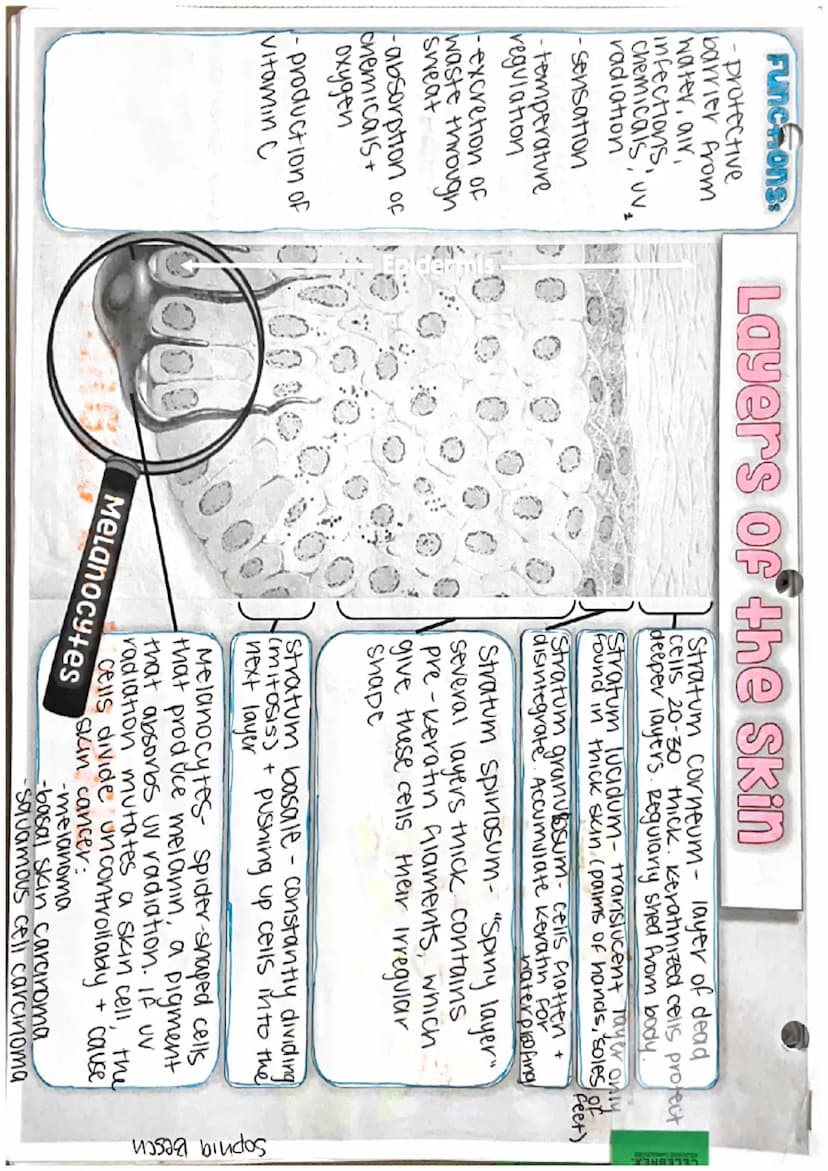 Layers of the Skin
Functions:
- protective
barrier from
water, air,
infections,
chemicals, UV
radiation
- sensation
- temperature
regulation
- excretion of
waste through
sweat
- absorption of
chemicals +
oxygen
- production of
vitamin C
Epidermis
Melanocytes
Stratum corneum - layer of dead
cells 20-30 thick. Keratinized cells protect
deeper layers. Regularly shed from body.
Stratum lucidum - translucent layer only
found in thick skin (palms of hands, soles of
feet)
Stratum granulosum - cells flatten +
disintegrate. Accumulate keratin for
waterproofing
Stratum spinosum - "Spiny layer"
several layers thick contains
pre-keratin filaments, which
give these cells their irregular
shape
Stratum basale - constantly dividing
(mitosis) + pushing up cells into the
next layer
Melanocytes - spider-shaped cells
that produce melanin, a pigment
that absorbs UV radiation. If UV
radiation mutates a skin cell, the
cells divide uncontrollably + cause
skin cancer:
- melanoma
- basal skin carcinoma
- squamous cell carcinoma
Sophia Besch